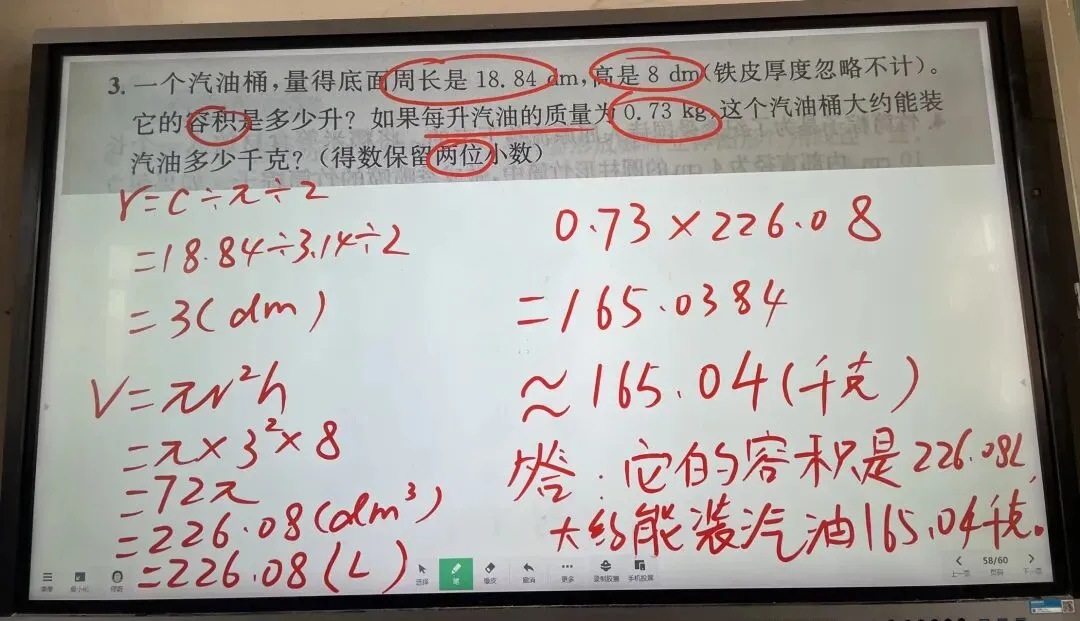 3. 一个汽油桶,量得底面周长是 18.84 dm,高是 8 dm(铁皮厚度忽略不计)。
它的容积是多少升?如果每升汽油的质量为 0.73 kg,这个汽油桶大约能装
汽油多少千克?(得数保留两位小数)
r=C÷π÷2
=18.84÷3.14÷2
=3(dm)
V=πr²h
=π×3²×8
=72π
=226.08(dm³)
=226.08(L)
0.73×226.08
=165.0384
≈165.04(千克)
答:它的容积是226.08L,
大约能装汽油165.04千克。
选择 笔 橡皮 撤消 更多 录制胶囊 手机投屏
58/60
上一页 页码 下一页